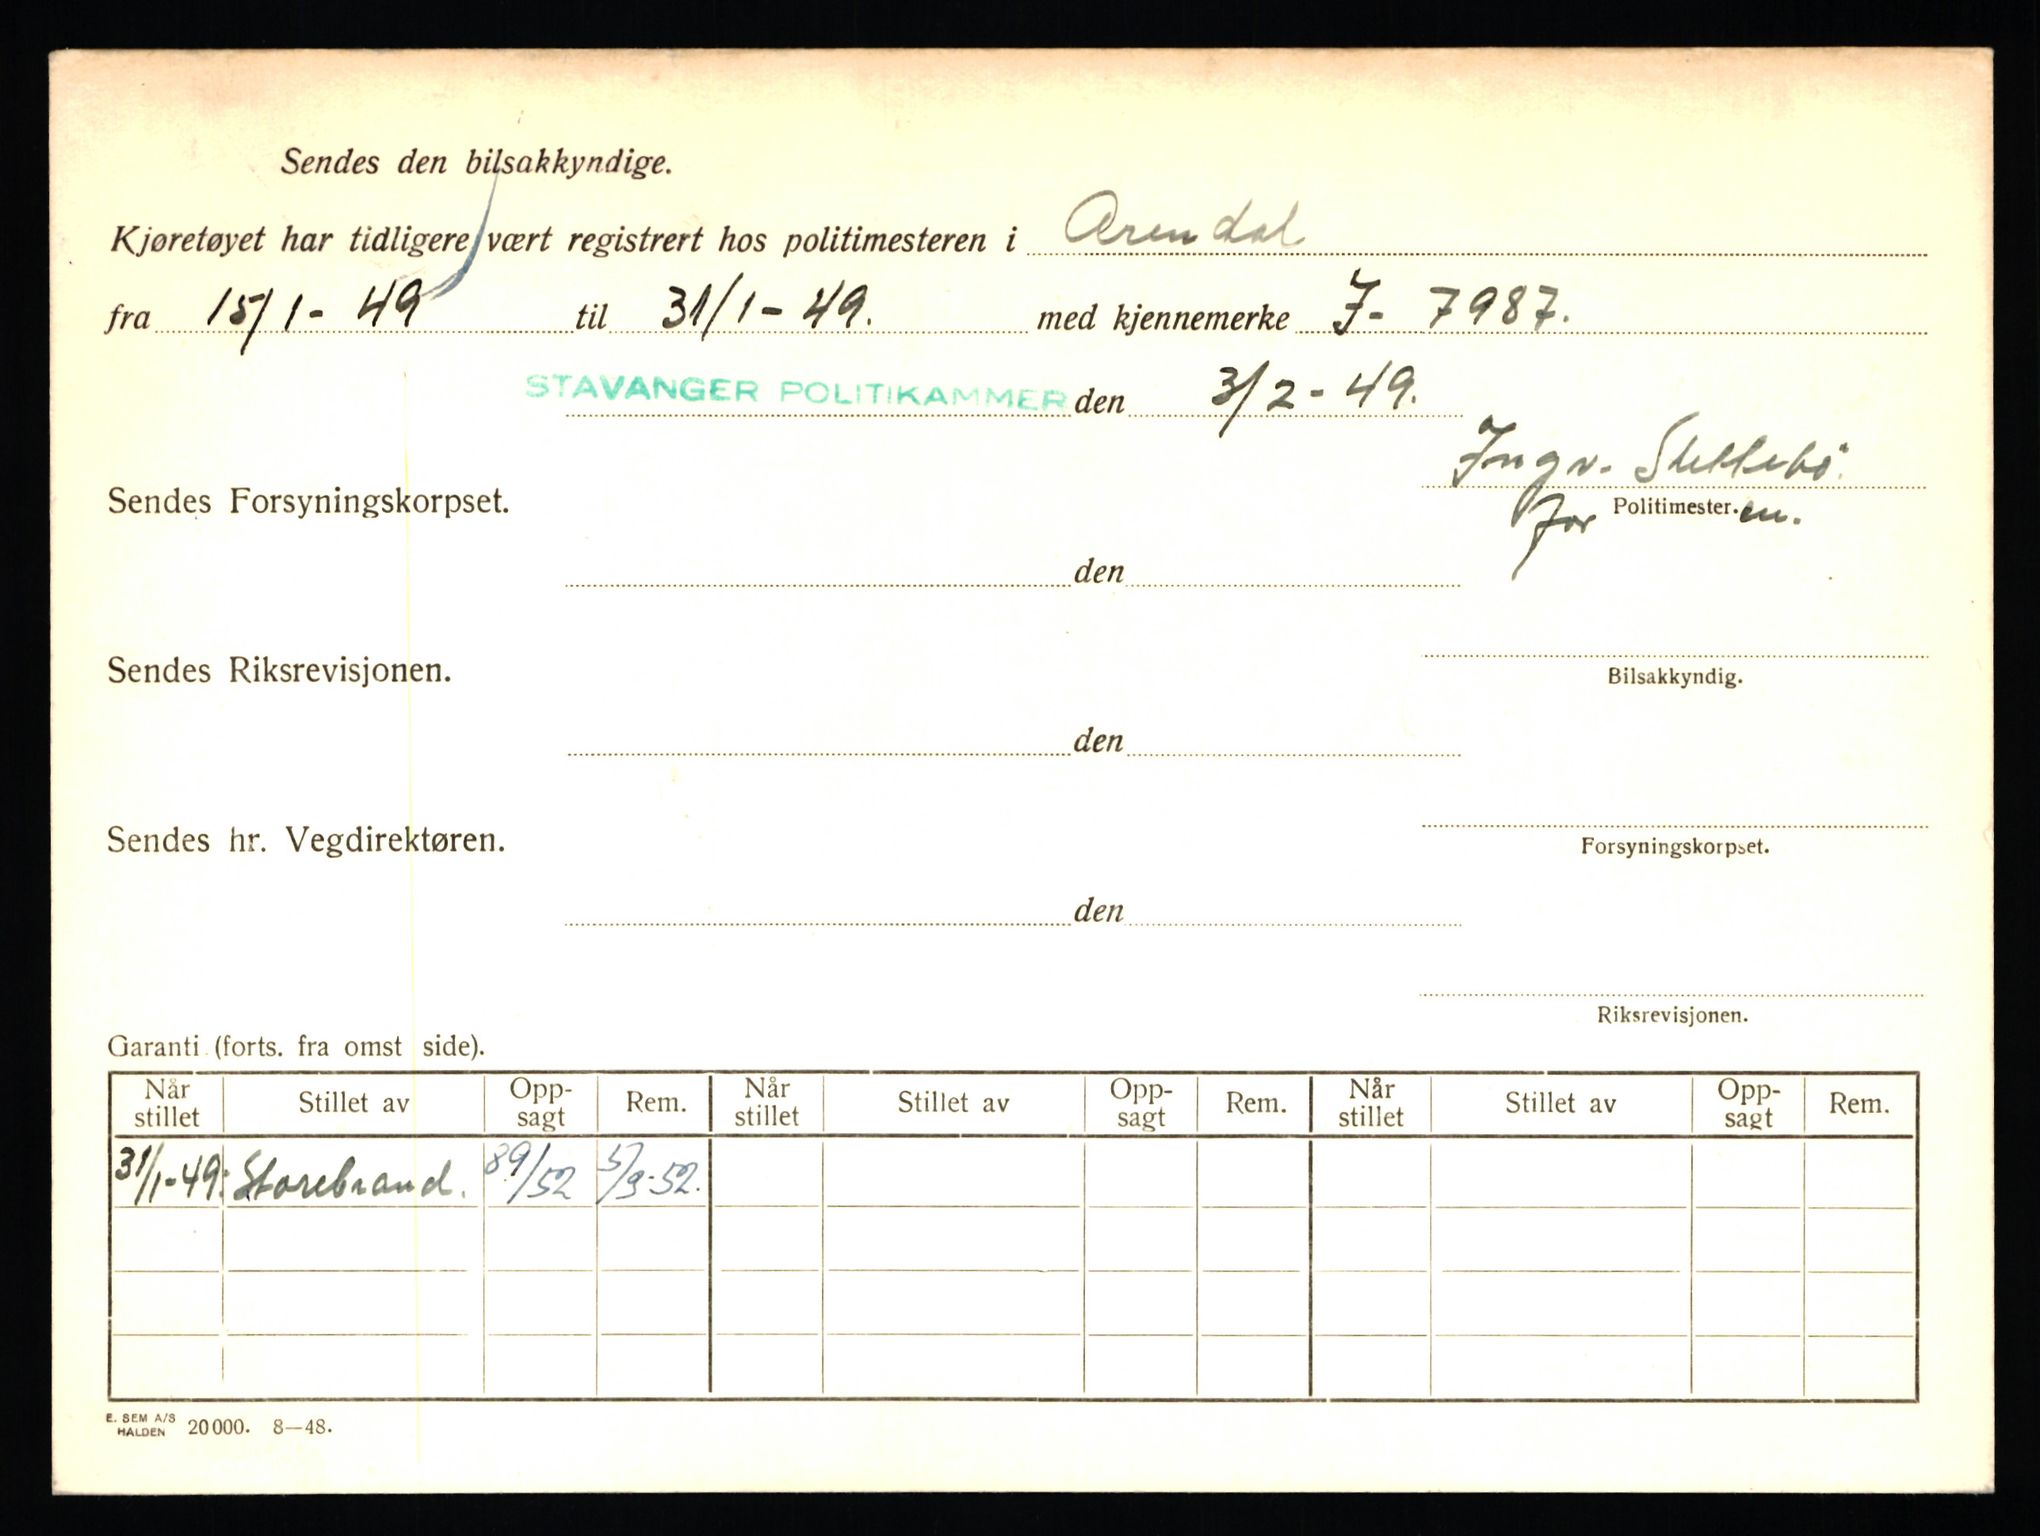 Sendes den bilsakkyndige.
Kjøretøyet har tidligere vært registrert hos politimesteren i Arendal
fra 15/1-49 til 31/1-49. med kjennemerke I- 7987.
STAVANGER POLITIKAMMER den 3/2-49.
Ingv.
Sendes Forsyningskorpset.
for Politimester.en.
den
Sendes Riksrevisjonen.
Bilsakkyndig.
den
Sendes hr. Vegdirektøren.
Forsyningskorpset.
den
Riksrevisjonen.
Garanti (forts. fra omst side).
Når stillet Stillet av Opp-sagt Rem. Når stillet Stillet av Opp-sagt Rem. Når stillet Stillet av Opp-sagt Rem.
31/1-49. Storebrand. 89/52 5/9-52.
E. SEM A/S HALDEN 20000. 8—48.